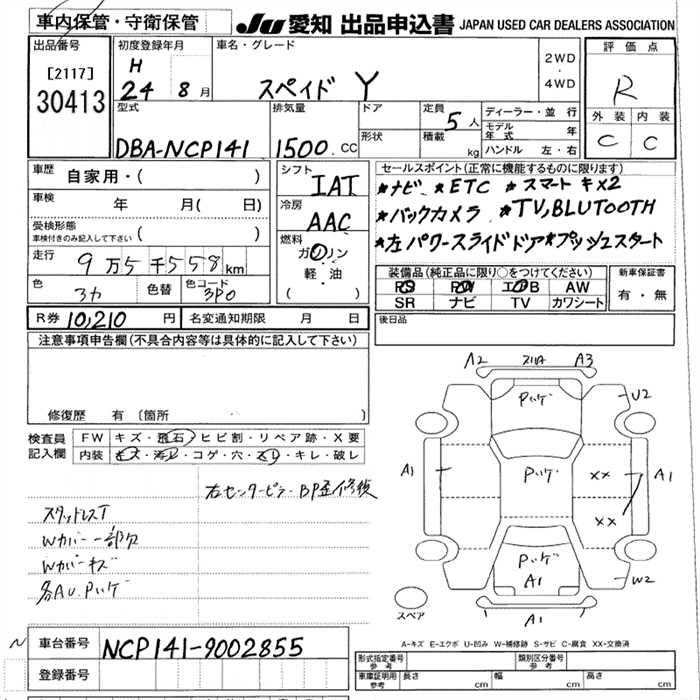 車内保管・守衛保管
JU 愛知 出品申込書 JAPAN USED CAR DEALERS ASSOCIATION
出品番号
[2117]
30413
初度登録年月
H
24 8月
車名・グレード
スペイド Y
2WD
・
4WD
評価点
R
外装 内装
C C
型式
DBA-NCP141
排気量
1500.CC
ドア
形状
定員
5人
積載
kg
ディーラー・並行
モデル年式 年
ハンドル 左・右
車歴 自家用・( )
車検 年 月( 日)
受検形態
車検付きのみ記入して下さい ( )
走行 9万5千558km
色 3カ 色替 色コード 3P0
シフト IAT
冷房 AAC
燃料
ガソリン
・
軽・油
( )
セールスポイント(正常に機能するものに限ります)
*ナビ *ETC *スマートキx2
*バックカメラ *TV,BLUTOOTH
*左パワースライドドア*プッシュスタート
装備品(純正品に限り○をつけてください)
PS PW エアB AW
SR ナビ TV カワシート
新車保証書
有・無
R券 10,210 円 名変通知期限 月 日
後日品
注意事項申告欄(不具合内容等は具体的に記入して下さい)
修復歴 有 (箇所
検査員
記入欄
FW キズ・飛石・ヒビ割・リペア跡・X要
内装 キズ・汚レ・コゲ・穴・スレ・キレ・破レ
右センターピラーBP歪修復
スタッドレスT
Wカバー一部欠
Wカバーキズ
各AU.Pハゲ
A2 A3
Pハゲ
U2
A1 Pハゲ XX A1
XX
Pハゲ
A1
W2
スペア
A1
A-キズ E-エクボ U-凹み W-補修跡 S-サビ C-腐食 XX-交換済
N
車台番号 NCP141-9002855
登録番号
形式指定番号
参考
類別区分番号
参考
車庫証明用
参考
長さ cm 幅 cm 高さ cm